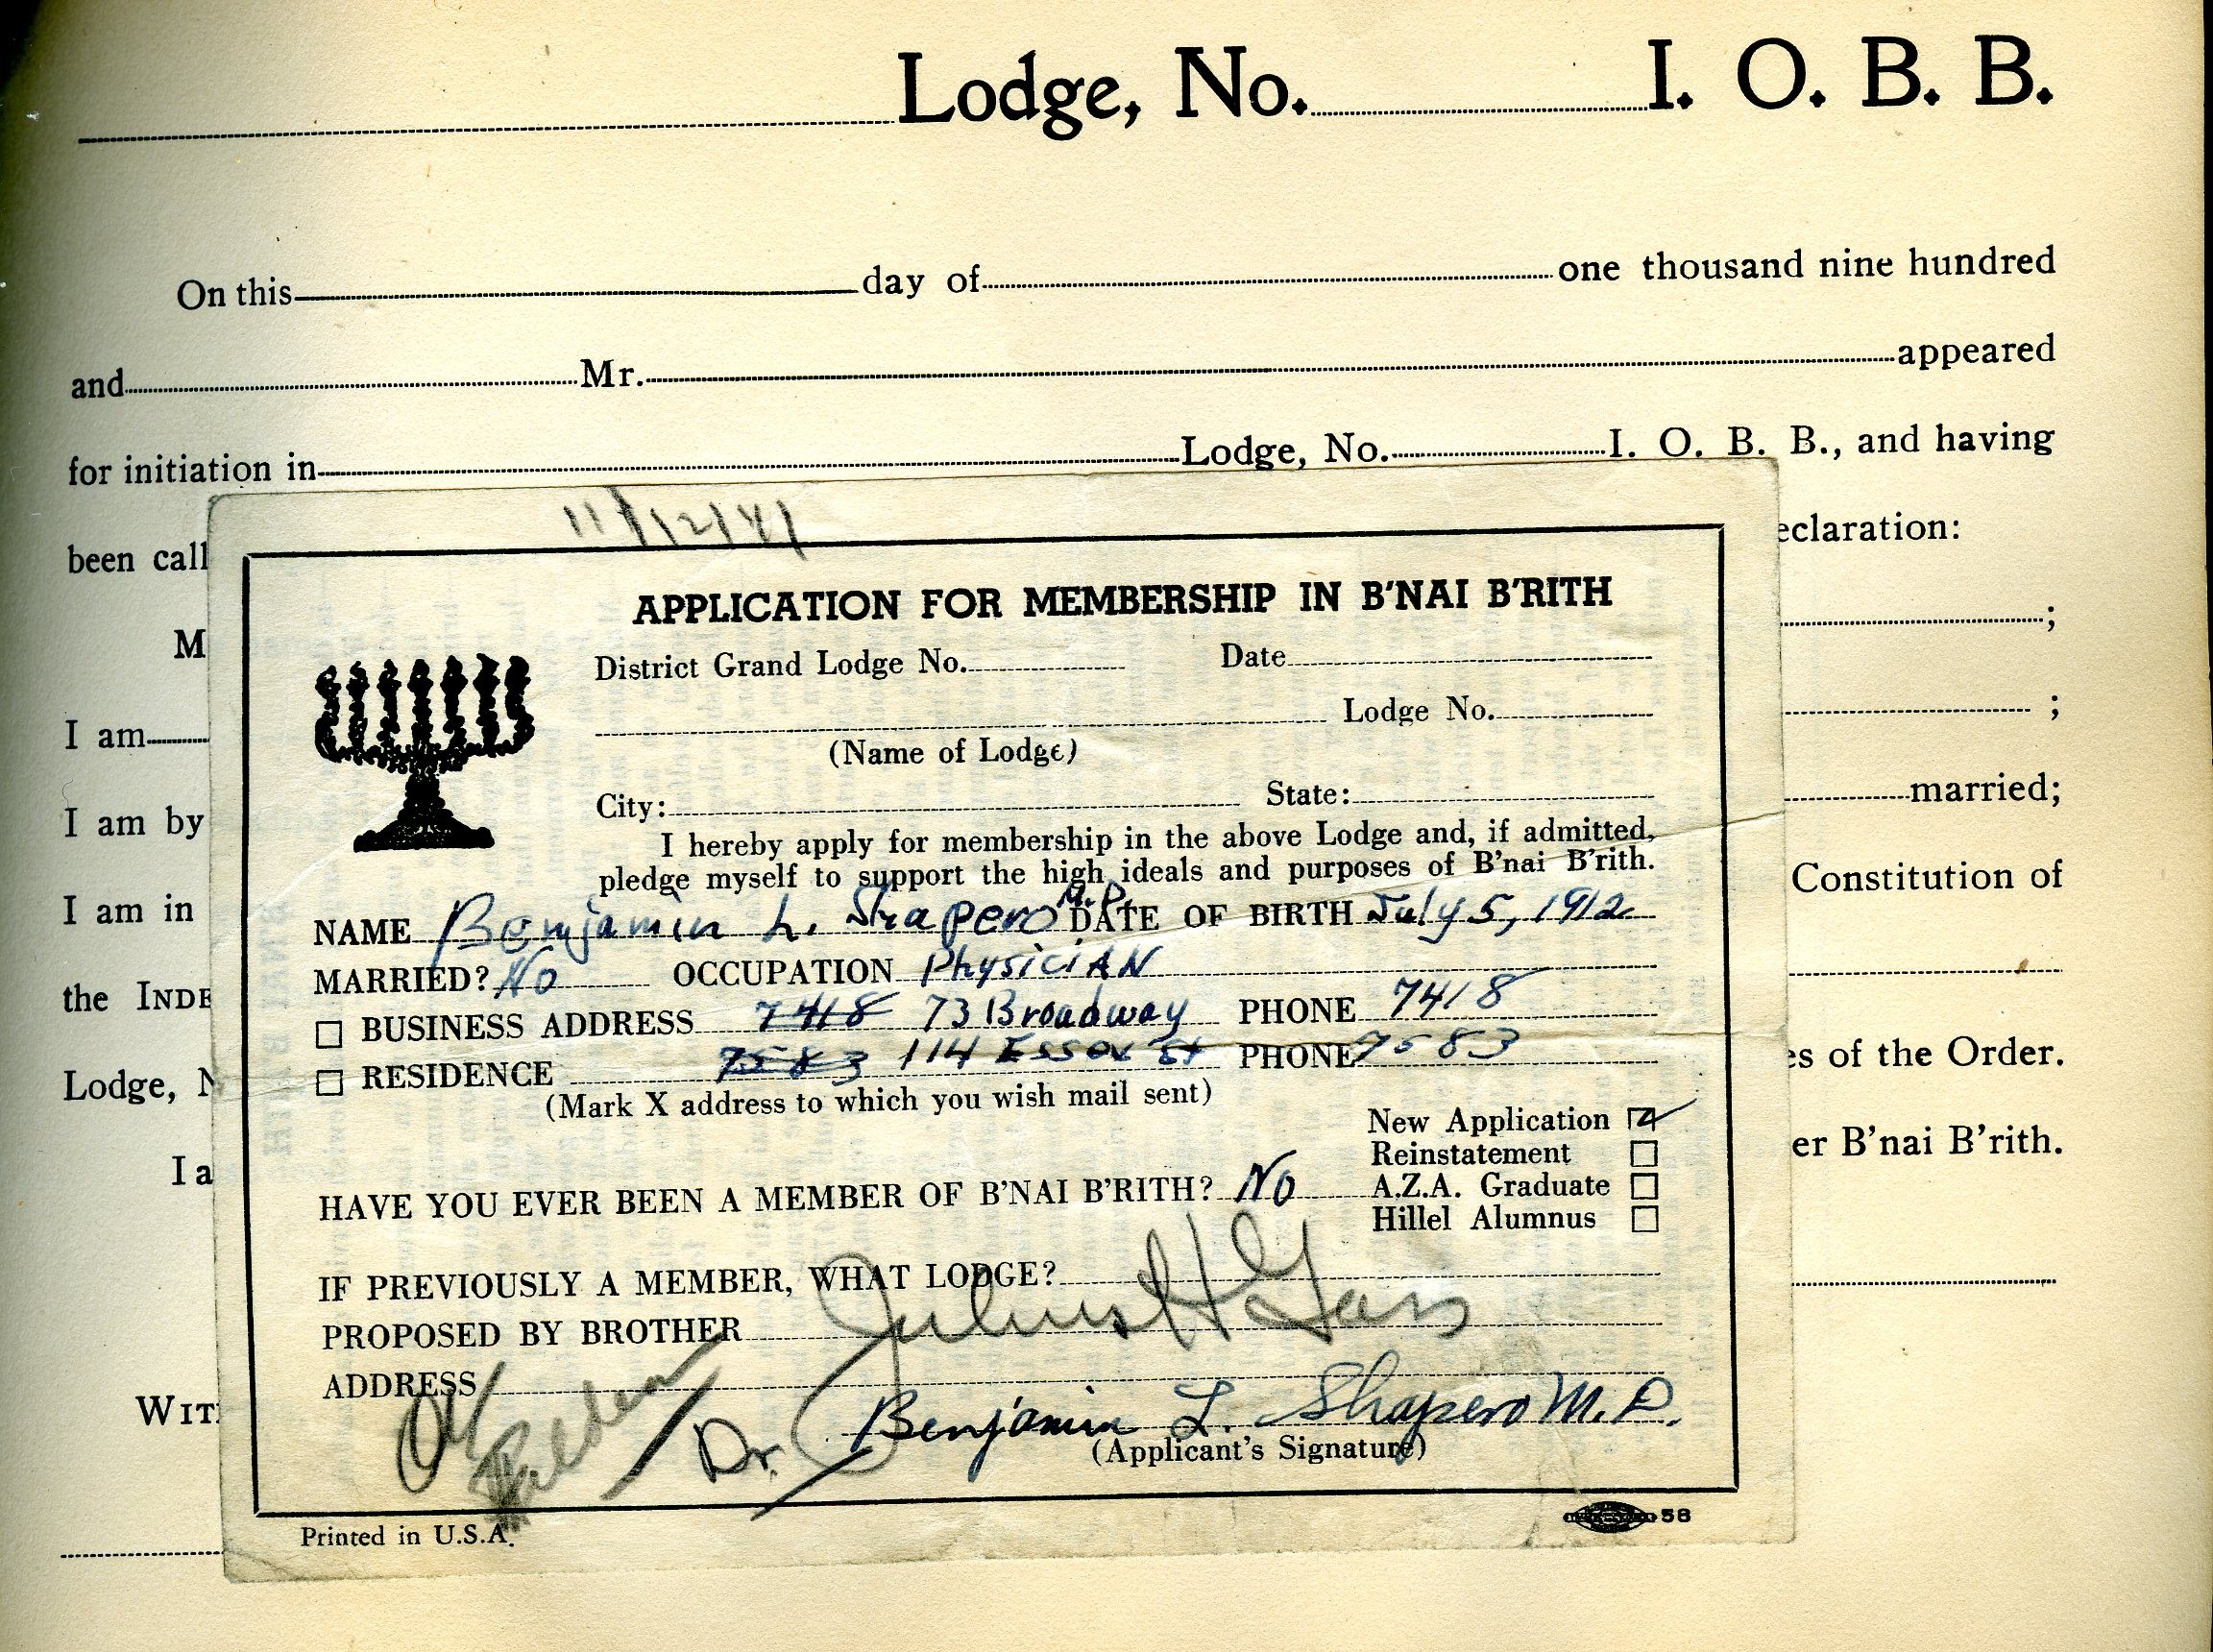 Lodge, No. I. O. B. B.
On this day of one thousand nine hundred
and Mr. appeared
for initiation in Lodge, No. I. O. B. B., and having
11/12/41
been call eclaration:
APPLICATION FOR MEMBERSHIP IN B'NAI B'RITH
M ;
District Grand Lodge No. Date
Lodge No.
I am ;
(Name of Lodge)
City: State:
I am by married;
I hereby apply for membership in the above Lodge and, if admitted,
pledge myself to support the high ideals and purposes of B'nai B'rith.
I am in Constitution of
NAME Benjamin L. Shapero M.D. DATE OF BIRTH July 5, 1912
MARRIED? No OCCUPATION Physician
the INDE
BUSINESS ADDRESS 7418 73 Broadway PHONE 7418
RESIDENCE 7583 114 Essex St PHONE 7583
Lodge, N es of the Order.
(Mark X address to which you wish mail sent)
New Application
Reinstatement
I a er B'nai B'rith.
HAVE YOU EVER BEEN A MEMBER OF B'NAI B'RITH? No A.Z.A. Graduate
Hillel Alumnus
IF PREVIOUSLY A MEMBER, WHAT LODGE?
PROPOSED BY BROTHER Julius H Gans
ADDRESS
WIT
OK
Dr. Benjamin L. Shapero M.D.
(Applicant's Signature)
Printed in U.S.A. 58